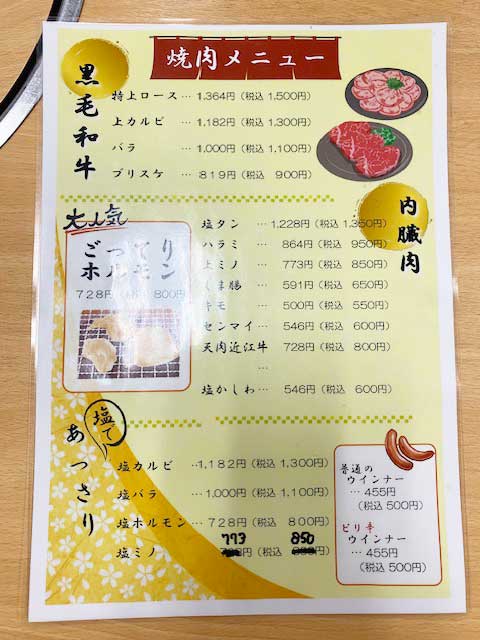 焼肉メニュー
黒毛和牛
特上ロース … 1,364円（税込 1,500円）
上カルビ … 1,182円（税込 1,300円）
バラ … 1,000円（税込 1,100円）
ブリスケ … 819円（税込 900円）
内臓肉
大人気
こってり
ホルモン
728円（税込 800円）
塩タン … 1,228円（税込 1,350円）
ハラミ … 864円（税込 950円）
上ミノ … 773円（税込 850円）
腸 … 591円（税込 650円）
キモ … 500円（税込 550円）
センマイ… 546円（税込 600円）
天肉近江牛 728円（税込 800円）
…
塩かしわ… 546円（税込 600円）
塩で
あっさり
塩カルビ …1,182円（税込 1,300円）
塩バラ … 1,000円（税込 1,100円）
塩ホルモン…728円（税込 800円）
773 850
塩ミノ … 円（税込 円）
普通の
ウインナー
… 455円
（税込 500円）
ピリ辛
ウインナー
… 455円
（税込 500円）